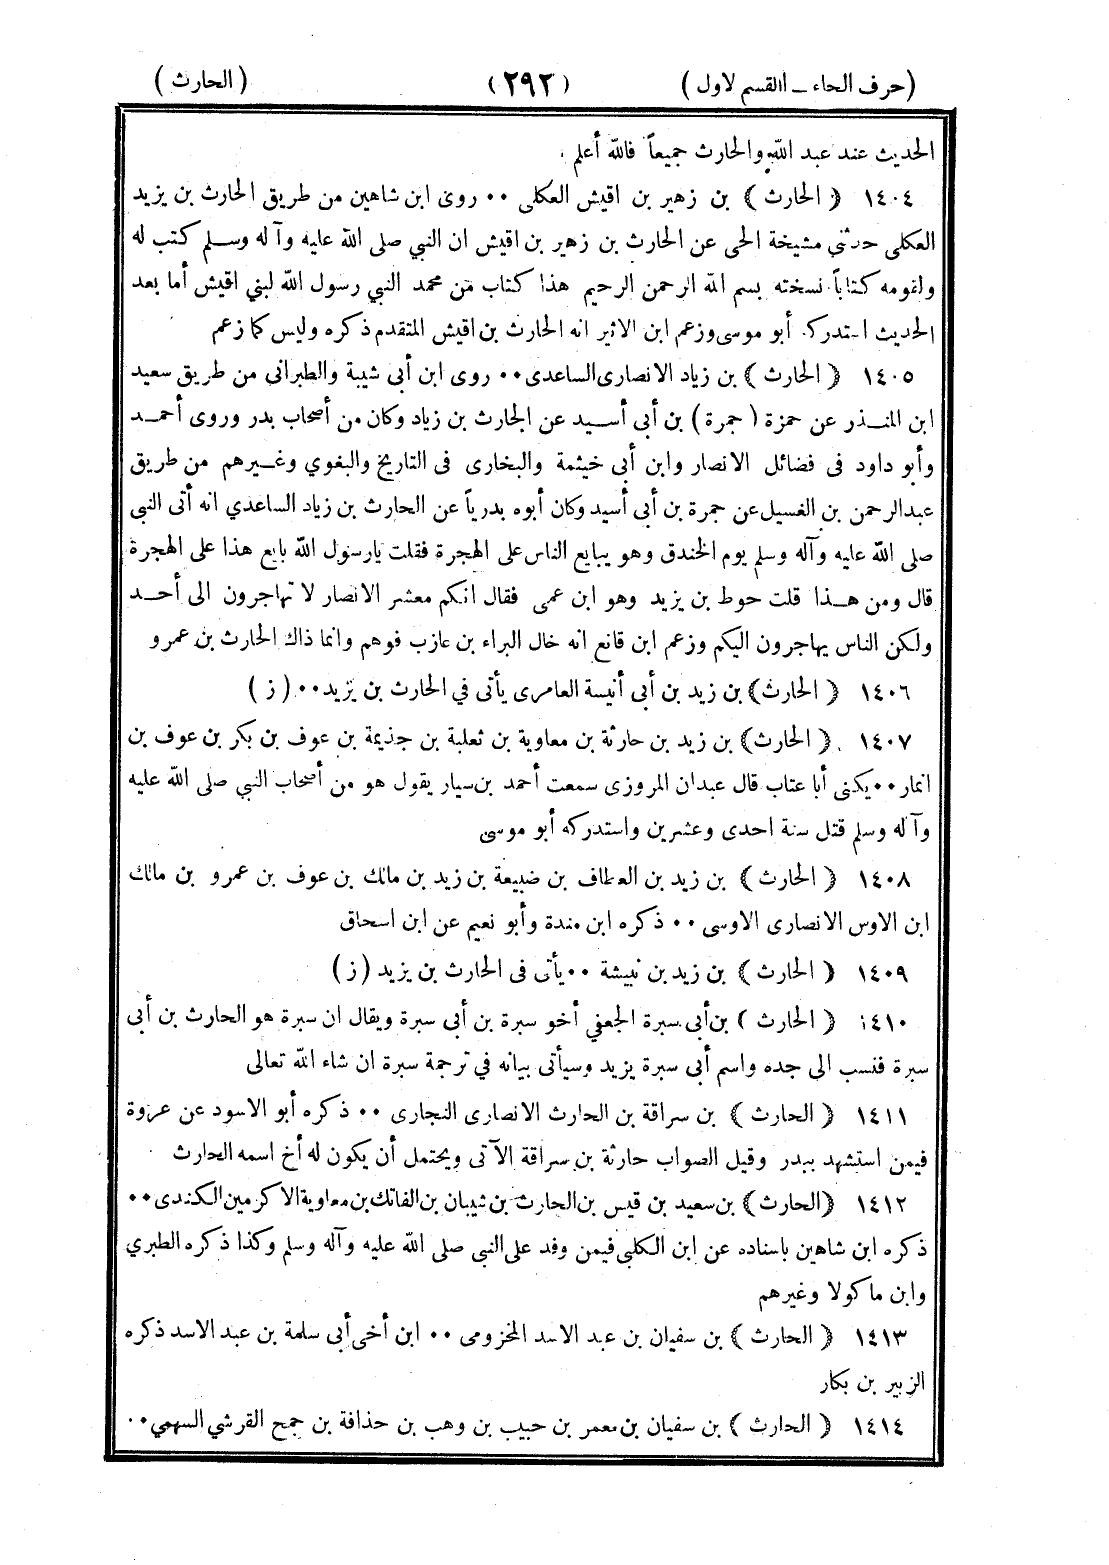 (حرف الحاء ــ االقسم لاول) (٢٩٢) (الحارث)
الحديث عند عبد الله والحارث جميعاً فالله أعلم .
١٤٠٤ ﴿ الحارث ﴾ بن زهير بن اقيش العكلى ٠٠ روى ابن شاهين من طريق الحارث بن يزيد
العكلى حدثني مشيخة الحى عن الحارث بن زهير بن اقيش ان النبي صلى الله عليه وآله وسلم كتب له
ولقومه كتاباً نسخته بسم الله الرحمن الرحيم هذا كتاب من محمد النبي رسول الله لبني اقيش أما بعد
الحديث استدركه أبو موسى وزعم ابن الاثير انه الحارث بن اقيش المتقدم ذكره وليس كما زعم
١٤٠٥ ﴿ الحارث ﴾ بن زياد الانصارى الساعدى ٠٠ روى ابن أبى شيبة والطبرانى من طريق سعيد
ابن المنذر عن حمزة (حمرة) بن أبى أسيد عن الحارث بن زياد وكان من أصحاب بدر وروى أحمد
وأبو داود فى فضائل الانصار وابن أبى خيثمة والبخارى فى التاريخ والبغوي وغيرهم من طريق
عبدالرحمن بن الغسيل عن حمرة بن أبى أسيد وكان أبوه بدرياً عن الحارث بن زياد الساعدي انه أتى النبى
صلى الله عليه وآله وسلم يوم الخندق وهو يبايع الناس على الهجرة فقلت يارسول الله بايع هذا على الهجرة
قال ومن هذا قلت حوط بن يزيد وهو ابن عمى فقال انكم معشر الانصار لا تهاجرون الى أحد
ولكن الناس يهاجرون اليكم وزعم ابن قانع انه خال البراء بن عازب فوهم وانما ذاك الحارث بن عمرو
١٤٠٦ ﴿ الحارث ﴾ بن زيد بن أبى أنيسة العامرى يأتى في الحارث بن يزيد ٠٠ ( ز )
١٤٠٧ ﴿ الحارث ﴾ بن زيد بن حارثة بن معاوية بن ثعلبة بن جذيمة بن عوف بن بكر بن عوف بن
انمار ٠٠ يكنى أبا عتاب قال عبدان المروزى سمعت أحمد بن سيار يقول هو من أصحاب النبي صلى الله عليه
وآله وسلم قتل سنة احدى وعشرين واستدركه أبو موسى
١٤٠٨ ﴿ الحارث ﴾ بن زيد بن العطاف بن ضبيعة بن زيد بن مالك بن عوف بن عمرو بن مالك
ابن الاوس الانصارى الاوسى ٠٠ ذكره ابن مندة وأبو نعيم عن ابن اسحاق
١٤٠٩ ﴿ الحارث ﴾ بن زيد بن نبيشة ٠٠ يأتى فى الحارث بن يزيد ( ز )
١٤١٠ ﴿ الحارث ﴾ بن أبى سبرة الجعفي أخو سبرة بن أبى سبرة ويقال ان سبرة هو الحارث بن أبى
سبرة فنسب الى جده واسم أبى سبرة يزيد وسيأتى بيانه في ترجمة سبرة ان شاء الله تعالى
١٤١١ ﴿ الحارث ﴾ بن سراقة بن الحارث الانصارى النجارى ٠٠ ذكره أبو الاسود عن عروة
فيمن استشهد ببدر وقيل الصواب حارثة بن سراقة الآتى ويحتمل أن يكون له أخ اسمه الحارث
١٤١٢ ﴿ الحارث ﴾ بن سعيد بن قيس بن الحارث بن شيبان بن الفاتك بن معاوية الاكرمين الكندى ٠٠
ذكره ابن شاهين باسناده عن ابن الكلبى فيمن وفد على النبى صلى الله عليه وآله وسلم وكذا ذكره الطبري
وابن ماكولا وغيرهم
١٤١٣ ﴿ الحارث ﴾ بن سفيان بن عبد الاسد المخزومى ٠٠ ابن أخى أبى سلمة بن عبد الاسد ذكره
الزبير بن بكار
١٤١٤ ﴿ الحارث ﴾ بن سفيان بن معمر بن حبيب بن وهب بن حذافة بن جمح القرشي السهمي ٠٠